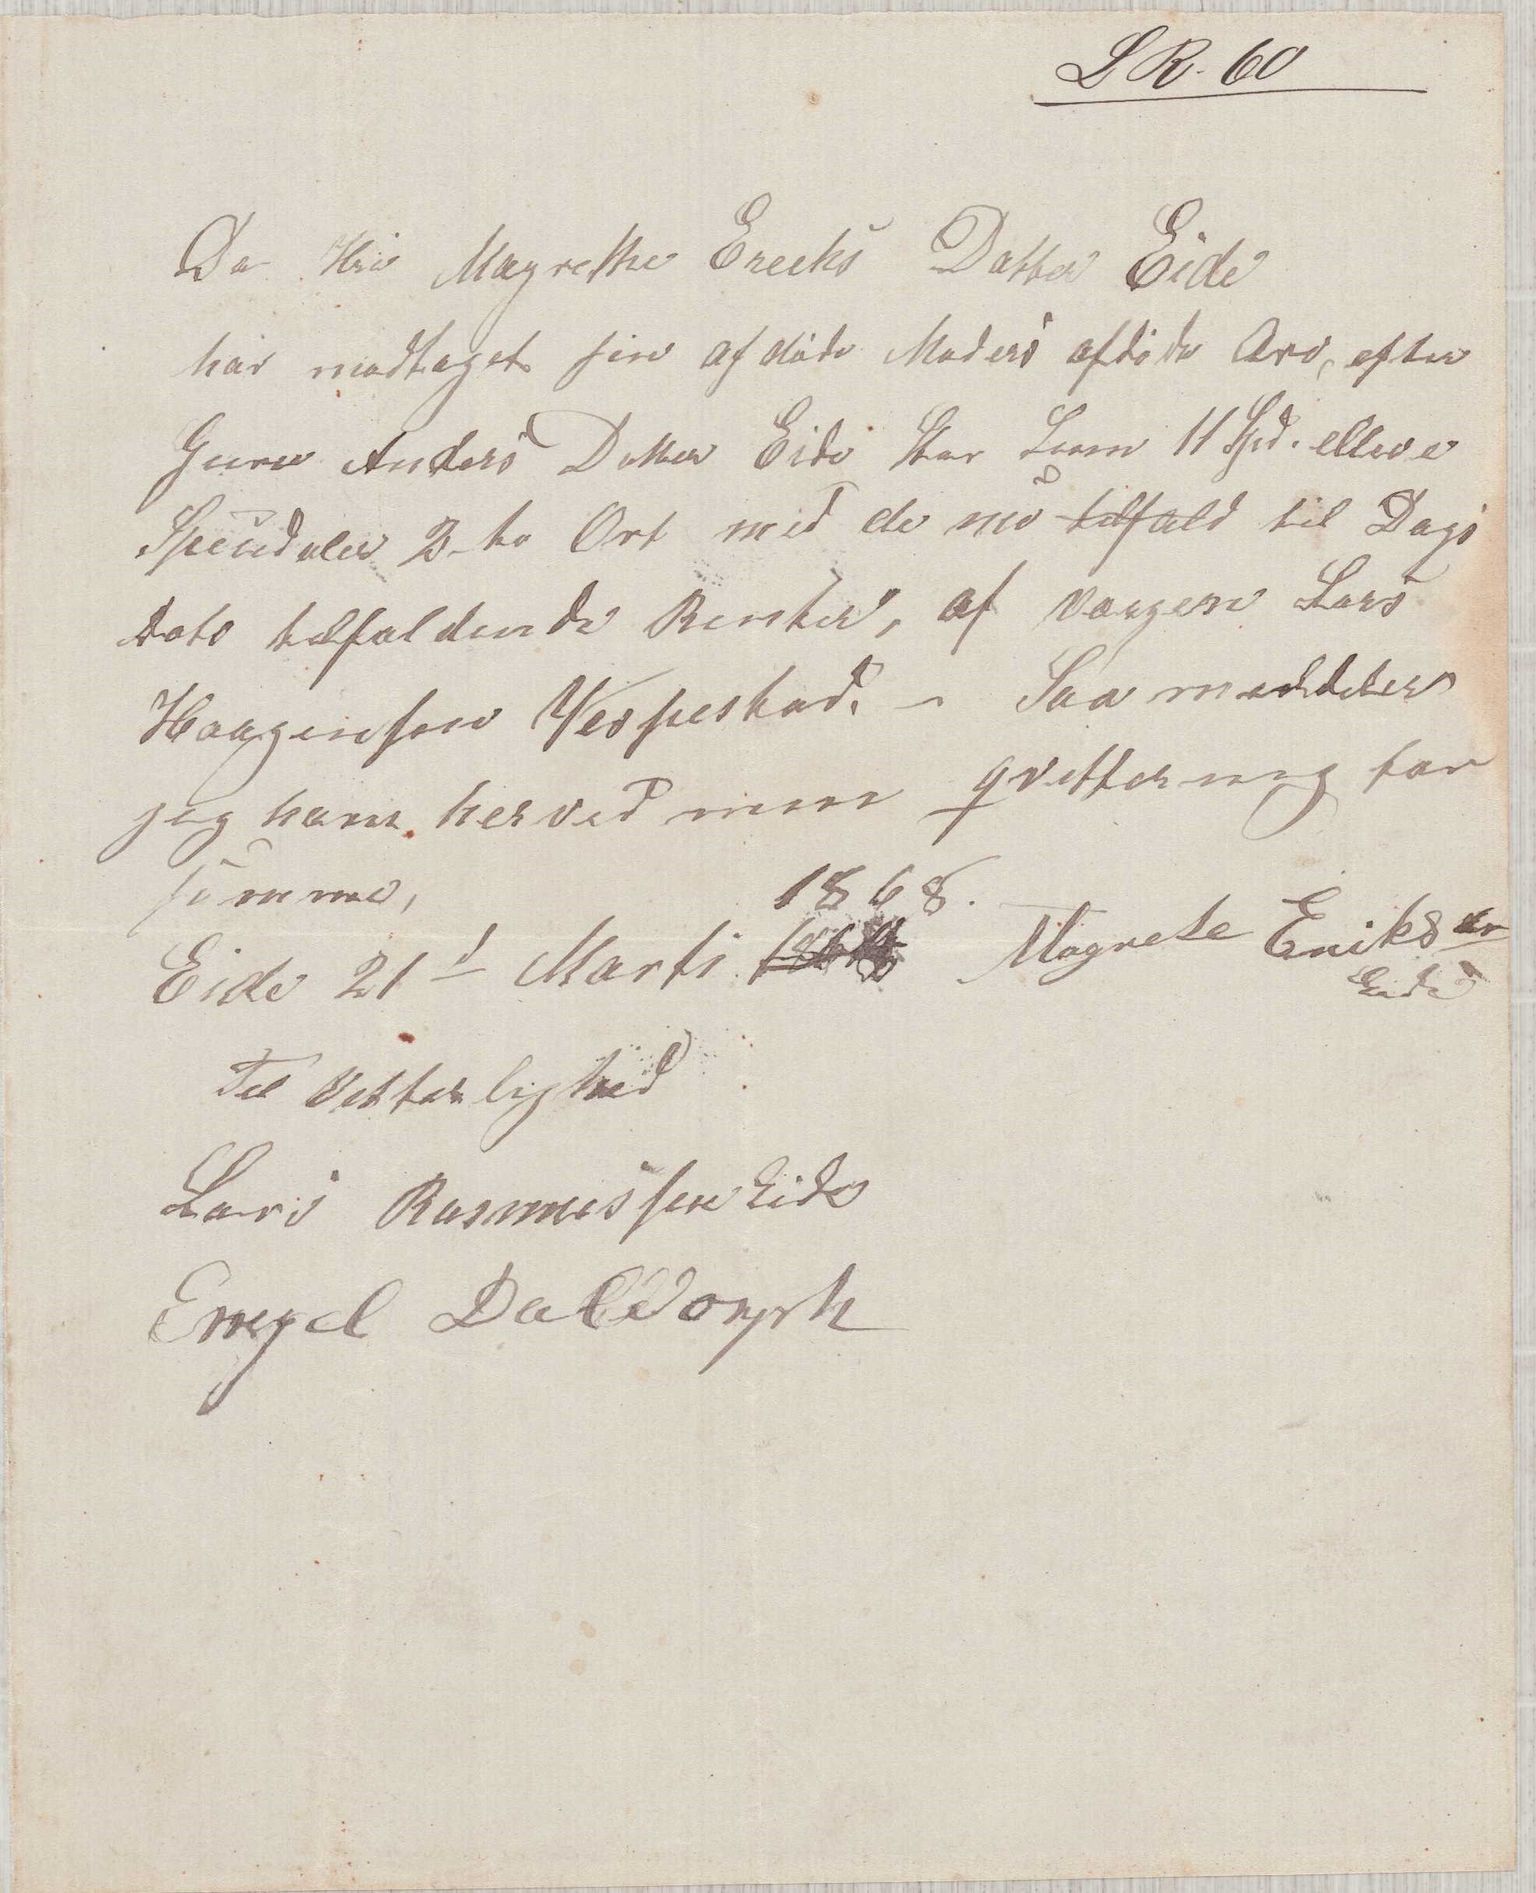 L R. 60
Da Magrethe Erecks Datter Eide
har modtaget sin afdöde Moders afdöde Arv, efter
Guru Anders Datter Eide Stor Sum 11 Spd. elleve
Speciedaler 2 to Ort med de nu tilfald til Dags
dato tilfaldende Renter, af værgen Lars
Haagensen Vespestad. - Saa meddeler
jeg ham herved min qvittering for
samme,
1868.
Eide 21 Marti Magrete Eriks dr
Eide
Til Vitterlighed
Lars Rasmussen Eide
Engel Dalldorph